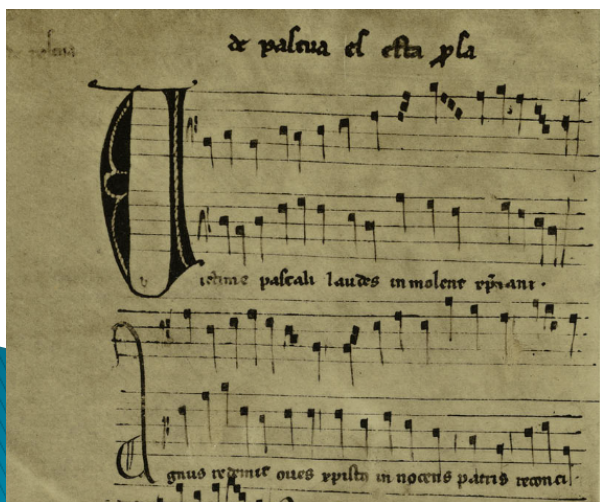 de pascua el esta p̱sa
Uictime pascali laudes inmolent xp̄iani .
Agnus redemit oues xpistus in nocens patris reconci